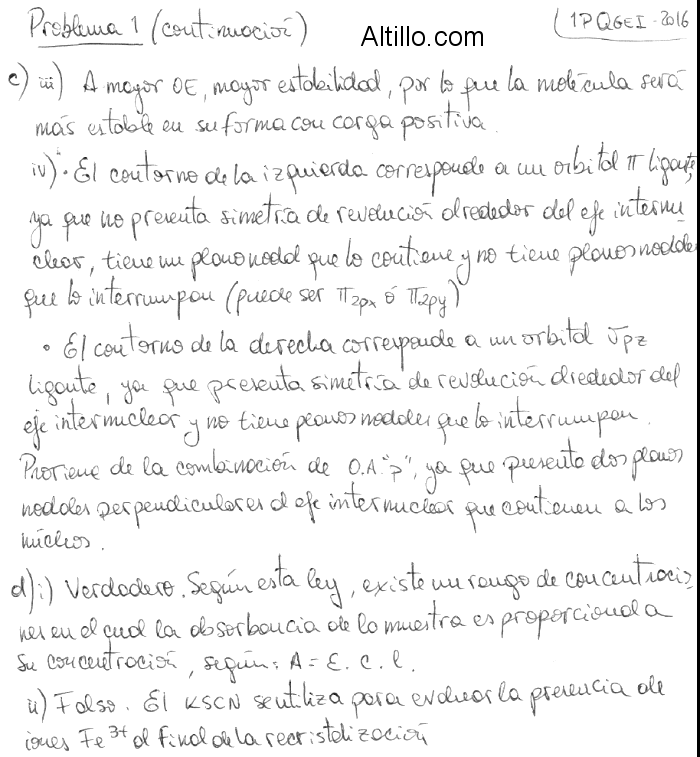 Problema 1 (continuación)
Altillo.com
(1PQGEI-2016
c) iii) A mayor OE, mayor estabilidad, por lo que la molécula será
más estable en su forma con carga positiva.
iv) • El contorno de la izquierda corresponde a un orbital π ligante,
ya que no presenta simetría de revolución alrededor del eje internu
clear, tiene un plano nodal que lo contiene y no tiene planos nodales
que lo interrumpan (puede ser π2px ó π2py)
• El contorno de la derecha corresponde a un orbital σpz
ligante, ya que presenta simetría de revolución alrededor del
eje internuclear y no tiene planos nodales que lo interrumpan.
Proviene de la combinación de O.A. "p", ya que presenta dos planos
nodales perpendiculares al eje internuclear que contienen a los
núcleos.
d) i) Verdadero. Según esta ley, existe un rango de concentracio
nes en el cual la absorbancia de la muestra es proporcional a
su concentración, según: A = ε. c. l.
ii) Falso. El KSCN se utiliza para evaluar la presencia de
iones Fe³⁺ al final de la recristalización